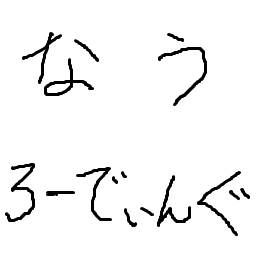 なう
ろーでぃんぐ